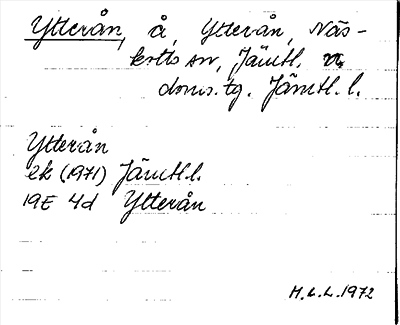 Ytterån, å, Ytterån, Näs-
kotts sn, Jämtl. n
doms.tg. Jämtl. l.
Ytterån
ek (1971) Jämtl. l.
19E 4d Ytterån
H.L.L. 1972